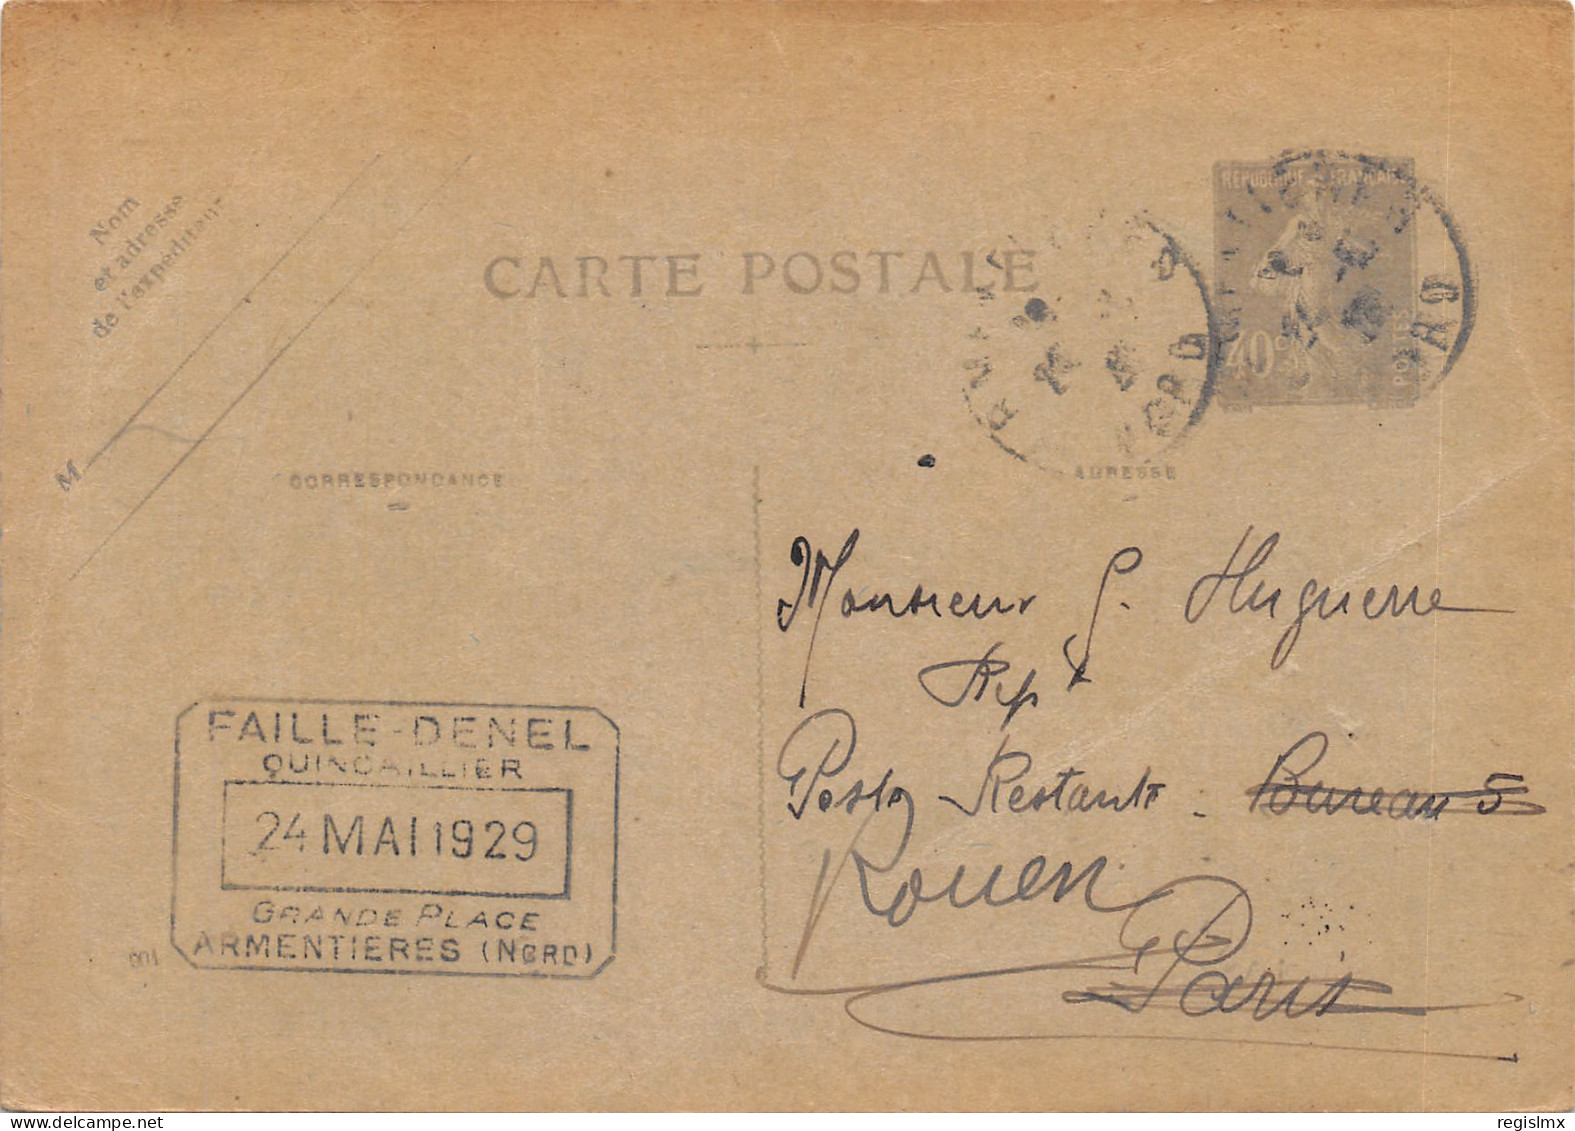 Nom
et adresse
de l'expéditeur
M
CARTE POSTALE
RÉPUBLIQUE FRANÇAISE
40c
POSTES
NORD
CORRESPONDANCE
ADRESSE
Monsieur G. Huguerre
Rept
Poste Restante - Bureau 5
Rouen
Paris
FAILLE-DENEL
QUINCAILLIER
24 MAI 1929
GRANDE PLACE
ARMENTIERES (NORD)
001
www.delcampe.net
regislmx